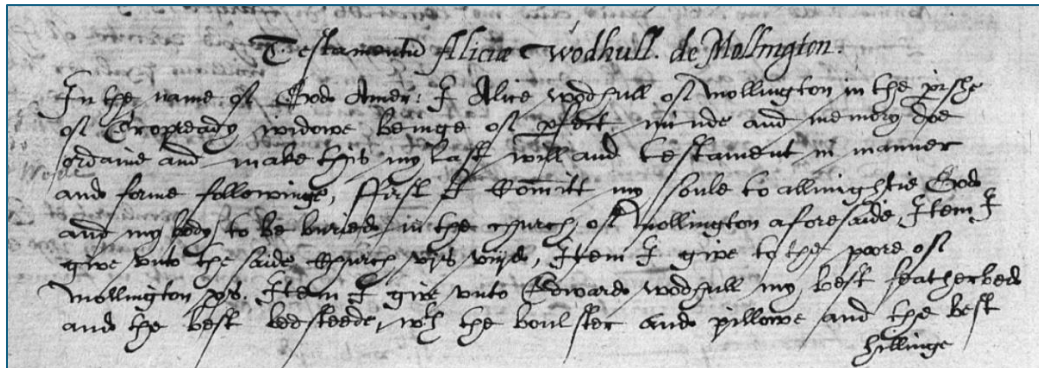 Testamentu Alicie Wodhull. de Mollington.
In the name of God Amen: I Alice wodhull of Mollington in the pishe
of Cropready widowe beinge of pfect minde and memory doe
ordaine and make this my last will and testament in manner
and forme followinge, ffirst I Comitt my soule to allmightie God
and my body to be buried in the church of Mollington aforesaide, Item I
give vnto the saide Church vjs viijd, Item I give to the poore of
Mollington xs. Item I give vnto Edward wodhull my best featherbed
and the best bedsteede, wth the boulster and pillowe and the best
hillinge